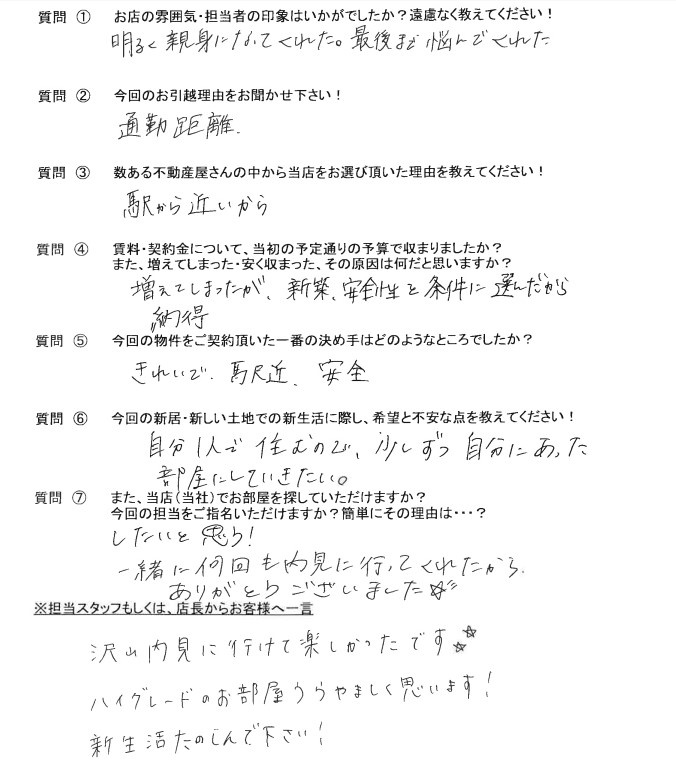 質問 ① お店の雰囲気・担当者の印象はいかがでしたか？遠慮なく教えてください！
明るく親身になってくれた。最後まで悩んでくれた
質問 ② 今回のお引越理由をお聞かせ下さい！
通勤距離.
質問 ③ 数ある不動産屋さんの中から当店をお選び頂いた理由を教えてください！
駅から近いから
質問 ④ 賃料・契約金について、当初の予定通りの予算で収まりましたか？
また、増えてしまった・安く収まった、その原因は何だと思いますか？
増えてしまったが、新築、安全性を条件に選んだから
納得
質問 ⑤ 今回の物件をご契約頂いた一番の決め手はどのようなところでしたか？
きれいで、駅近、安全
質問 ⑥ 今回の新居・新しい土地での新生活に際し、希望と不安な点を教えてください！
自分1人で住むので、少しずつ自分にあった
部屋にしていきたい。
質問 ⑦ また、当店（当社）でお部屋を探していただけますか？
今回の担当をご指名いただけますか？簡単にその理由は・・・？
したいと思う！
一緒に何回も内見に行ってくれたから.
ありがとうございました☆
※担当スタッフもしくは、店長からお客様へ一言
沢山内見に行けて楽しかったです☆☆
ハイグレードのお部屋うらやましく思います！
新生活たのしんで下さい！